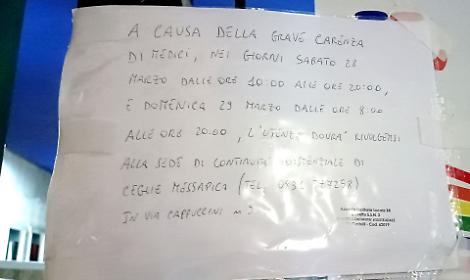 A CAUSA DELLA GRAVE CARENZA
DI MEDICI, NEI GIORNI SABATO 28
MARZO DALLE ORE 10:00 ALLE ORE 20:00,
E DOMENICA 29 MARZO DALLE ORE 8:00
ALLE ORE 20.00, L'UTENZA DOVRA' RIVOLGERSI
ALLA SEDE DI CONTINUITA' ASSISTENZIALE DI
CEGLIE MESSAPICA (TEL. 0831
IN VIA CAPPUCCINI